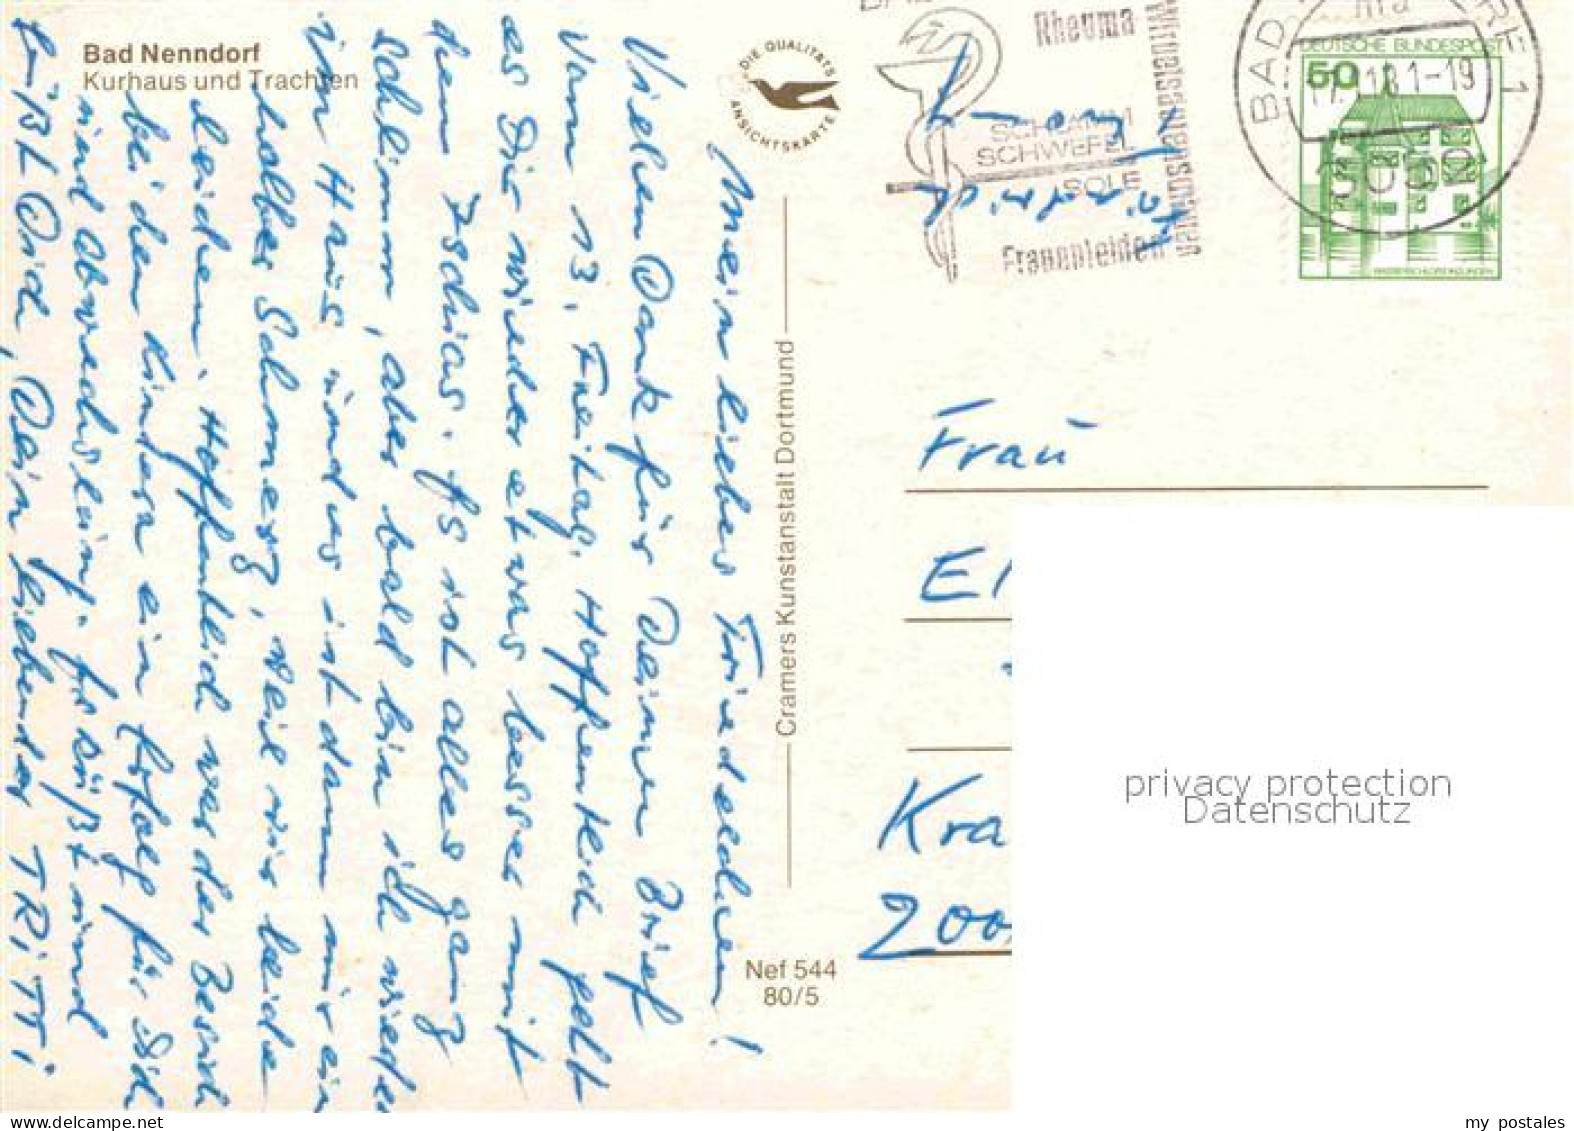 Bad Nenndorf
Kurhaus und Trachten
DIE QUALITÄTS
ANSICHTSKARTE
Mein liebes Friedelchen!
Vielen Dank für Deinen Brief
vom 13. Freitag. Hoffentlich geht
es Dir wieder etwas besser mit
dem Ischias. Es ist alles ganz
schlimm, aber bald bin ich wieder
im Haus und es ist dann nur ein
halber Schmerz, weil wir beide
leiden. Hoffentlich war der Besuch
bei den Kindern ein Erfolg für Dich
und Abwechslung. Es küßt und
küßt Dich, Dein liebender TRITTI
Cramers Kunstanstalt Dortmund
Nef 544
80/5
Rheuma
Wirbelsäulenschäden
SCHLAMM
SCHWEFEL
SOLE
Frauenleiden
BAD
1
81-19
DEUTSCHE BUNDESPOST
50
WASSERSCHLOSS INZLINGEN
Frau
El
Kra
200
privacy protection
Datenschutz
my postales